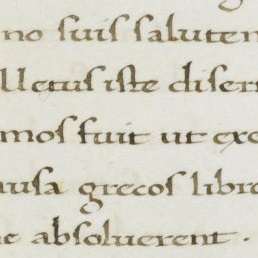 no suis saluten
lletus iste disert
mos fuit ut exe
ausa grecos libro
ne absoluerent ·